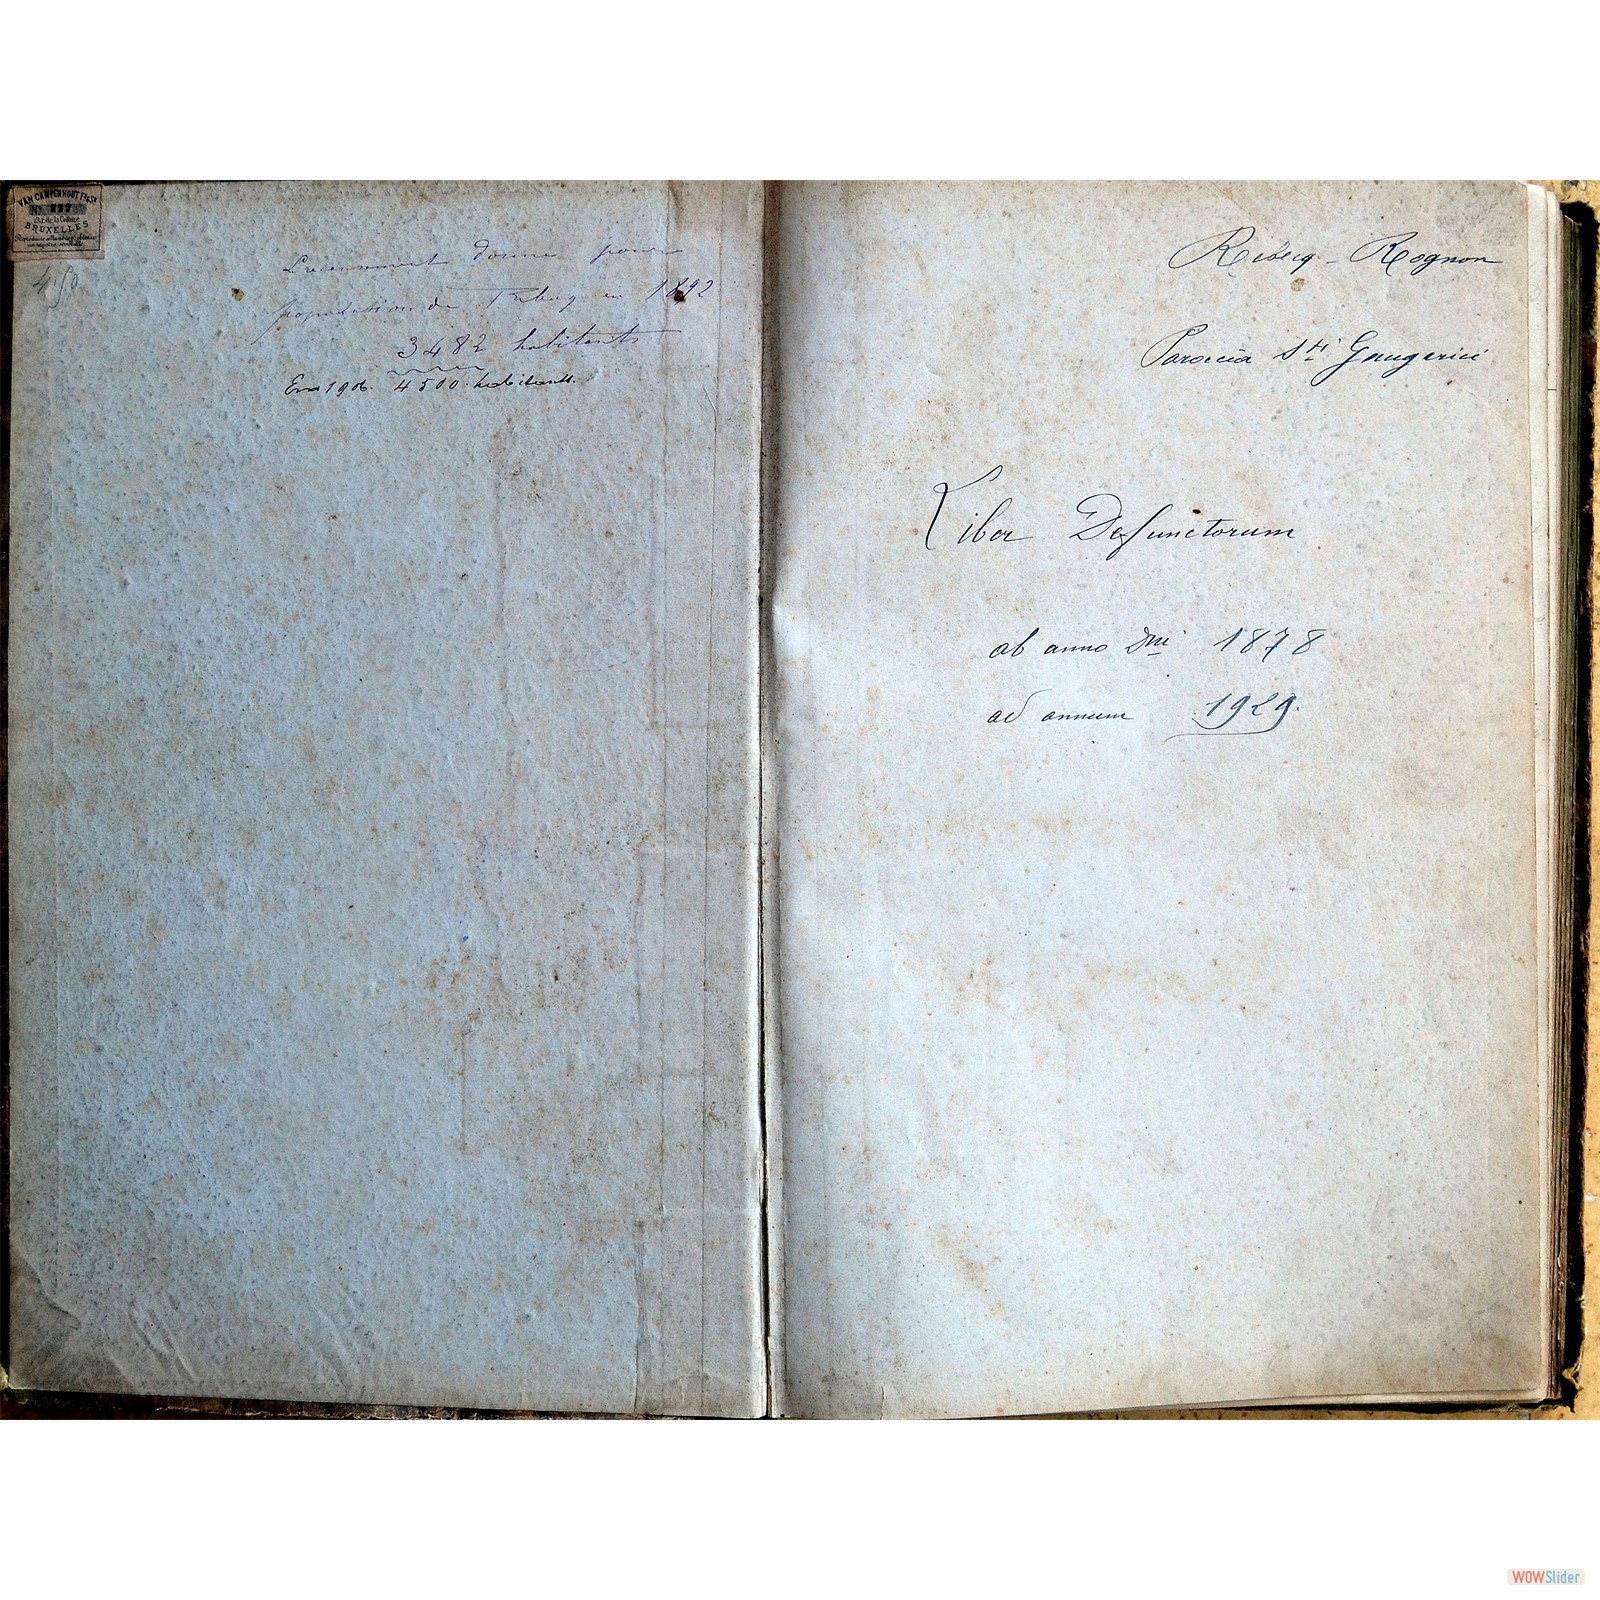 VAN CAMPENHOUT F. & S.
No. 137
BRUXELLES
4.50
donne pour
population de Rebecq en 1892
3482 habitants
En 1906. 4500 habitants.
Rebecq - Rognon
Paroccia Sti Gaugerici
Liber Defunctorum
ab anno Dni 1878
ad annum 1929.
WOWSlider